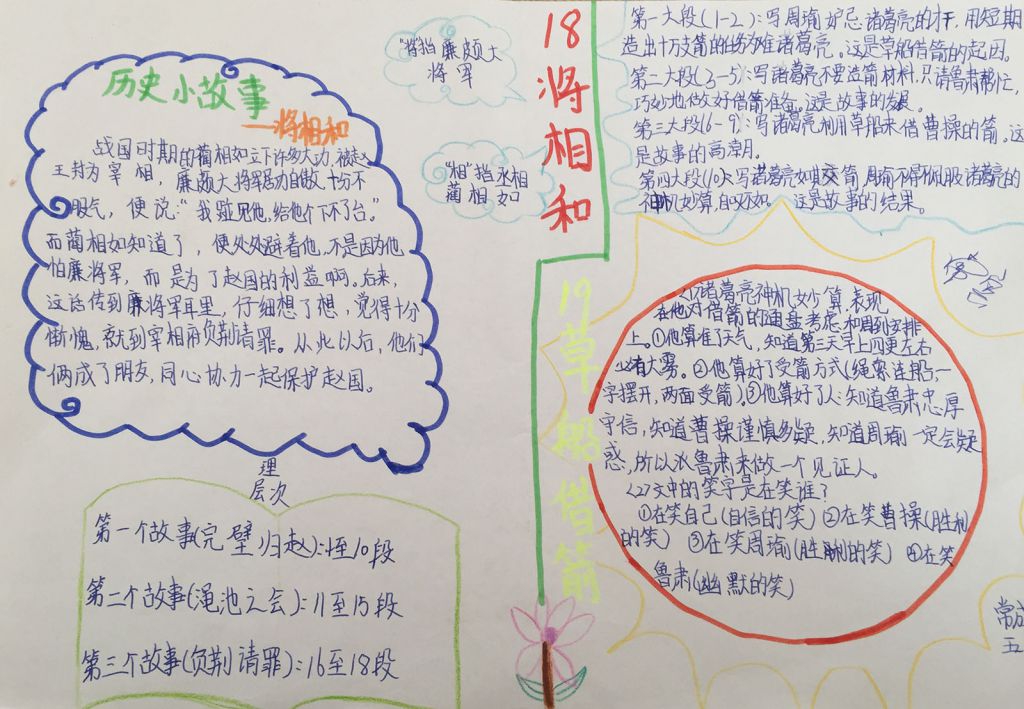 历史小故事
—将相和
战国时期的蔺相如立下许多大功,被赵
王封为宰相,廉颇大将军居功自傲,十分不
服气,便说:“我碰见他,给他个下不了台。”
而蔺相如知道了,便处处避着他,不是因为他
怕廉将军,而是为了赵国的利益啊。后来,
这话传到廉将军耳里,仔细想了想,觉得十分
惭愧,就到宰相府负荆请罪。从此以后,他们
俩成了朋友,同心协力一起保护赵国。
理
层次
第一个故事(完璧归赵):1至10段
第二个故事(渑池之会):11至15段
第三个故事(负荆请罪):16至18段
“将”指廉颇大
将军
“相”指丞相
蔺相如
18
将相和
第一大段(1-2):写周瑜妒忌诸葛亮的才,用短期
造出十万支箭的任务难诸葛亮,这是草船借箭的起因。
第二大段(3-5):写诸葛亮不要造箭材料,只请鲁肃帮忙,
巧妙地做好借箭准备。这是故事的发展。
第三大段(6-9):写诸葛亮利用草船来借曹操的箭。这
是故事的高潮。
第四大段(10):写诸葛亮如期交箭,周瑜不得不佩服诸葛亮的
神机妙算,自叹不如。这是故事的结果。
19草船借箭
<1>诸葛亮神机妙算,表现
在他对借箭的通盘考虑和周到安排
上。①他算准了天气,知道第三天早上四更左右
必有大雾。②他算好了受箭方式(绳索连船,一
字摆开,两面受箭)。③他算好了人:知道鲁肃忠厚
守信,知道曹操谨慎多疑,知道周瑜一定会疑
惑,所以求鲁肃来做一个见证人。
<2>文中的笑字是在笑谁?
①在笑自己(自信的笑)②在笑曹操(胜利
的笑)③在笑周瑜(胜利的笑)④在笑
鲁肃(幽默的笑)
五